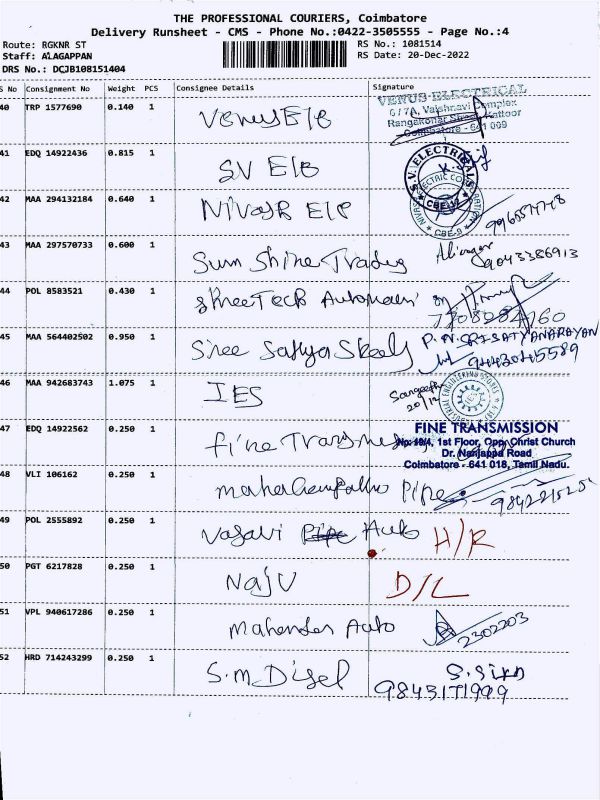 THE PROFESSIONAL COURIERS, Coimbatore
Delivery Runsheet - CMS - Phone No.:0422-3505555 - Page No.:4
Route: RGKNR ST
RS No.: 1081514
Staff: ALAGAPPAN
RS Date: 20-Dec-2022
DRS No.: DCJB108151404
S No Consignment No Weight PCS Consignee Details Signature
40 TRP 1577690 0.140 1 Venus E/B
VENUS ELECTRICAL
6 / 7A, Vaishnavi Complex
Rangakonar Street, Kattoor
Coimbatore - 641 009
41 EDQ 14922436 0.815 1 SV E/B
S.V. ELECTRICALS
42 MAA 294132184 0.640 1
CBE-9
43 MAA 297570733 0.600 1 Sun Shine Trading
9043386913
44 POL 8583521 0.430 1
45 MAA 564402502 0.950 1 Sree Sathya Steels
P.N.SRISATYANARAYAN
9443045589
46 MAA 942683743 1.075 1 IES
Sangeetha
20/12
47 EDQ 14922562 0.250 1 fine Transmission
FINE TRANSMISSION
No: 19/4, 1st Floor, Opp. Christ Church
Dr. Nanjappa Road
Coimbatore - 641 018, Tamil Nadu.
48 VLI 106162 0.250 1 Pipe
49 POL 2555892 0.250 1 Vasavi Pipe Auto H/R
50 PGT 6217828 0.250 1 Naju D/L
51 VPL 940617286 0.250 1 Mahender Auto
2302203
52 HRD 714243299 0.250 1 S.M Disel
9843171999